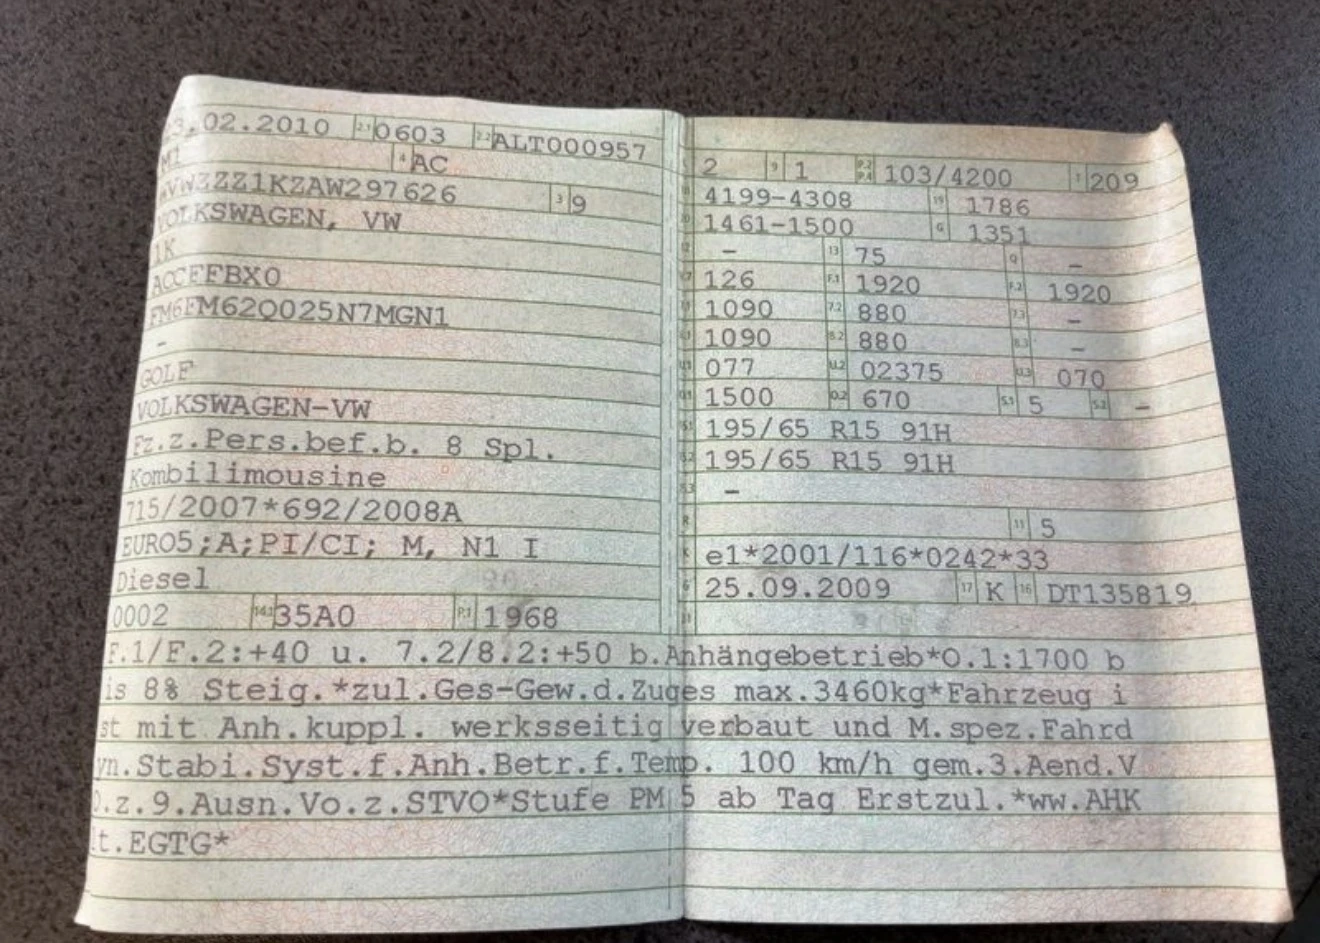 .02.2010 2.1 0603 2.2 ALT000957
M1 4 AC
WVWZZZ1KZAW297626 3 9
VOLKSWAGEN, VW
1K
ACCFFBX0
FM6FM62Q025N7MGN1
-
GOLF
VOLKSWAGEN-VW
Fz.z.Pers.bef.b. 8 Spl.
Kombilimousine
715/2007*692/2008A
EURO5;A;PI/CI; M, N1 I
Diesel
0002 14.1 35A0 P.1 1968
2 9 1 P.2 P.4 103/4200 T 209
18 4199-4308 19 1786
20 1461-1500 G 1351
12 - 13 75 Q -
V.7 126 F.1 1920 F.2 1920
7.1 1090 7.2 880 7.3 -
8.1 1090 8.2 880 8.3 -
U.1 077 U.2 02375 U.3 070
O.1 1500 O.2 670 S.1 5 S.2 -
15.1 195/65 R15 91H
15.2 195/65 R15 91H
15.3 -
R 11 5
K e1*2001/116*0242*33
6 25.09.2009 17 K 16 DT135819
21
F.1/F.2:+40 u. 7.2/8.2:+50 b.Anhängebetrieb*O.1:1700 b
is 8% Steig.*zul.Ges-Gew.d.Zuges max.3460kg*Fahrzeug i
st mit Anh.kuppl. werksseitig verbaut und M.spez.Fahrd
yn.Stabi.Syst.f.Anh.Betr.f.Temp. 100 km/h gem.3.Aend.V
O.z.9.Ausn.Vo.z.STVO*Stufe PM 5 ab Tag Erstzul.*ww.AHK
lt.EGTG*